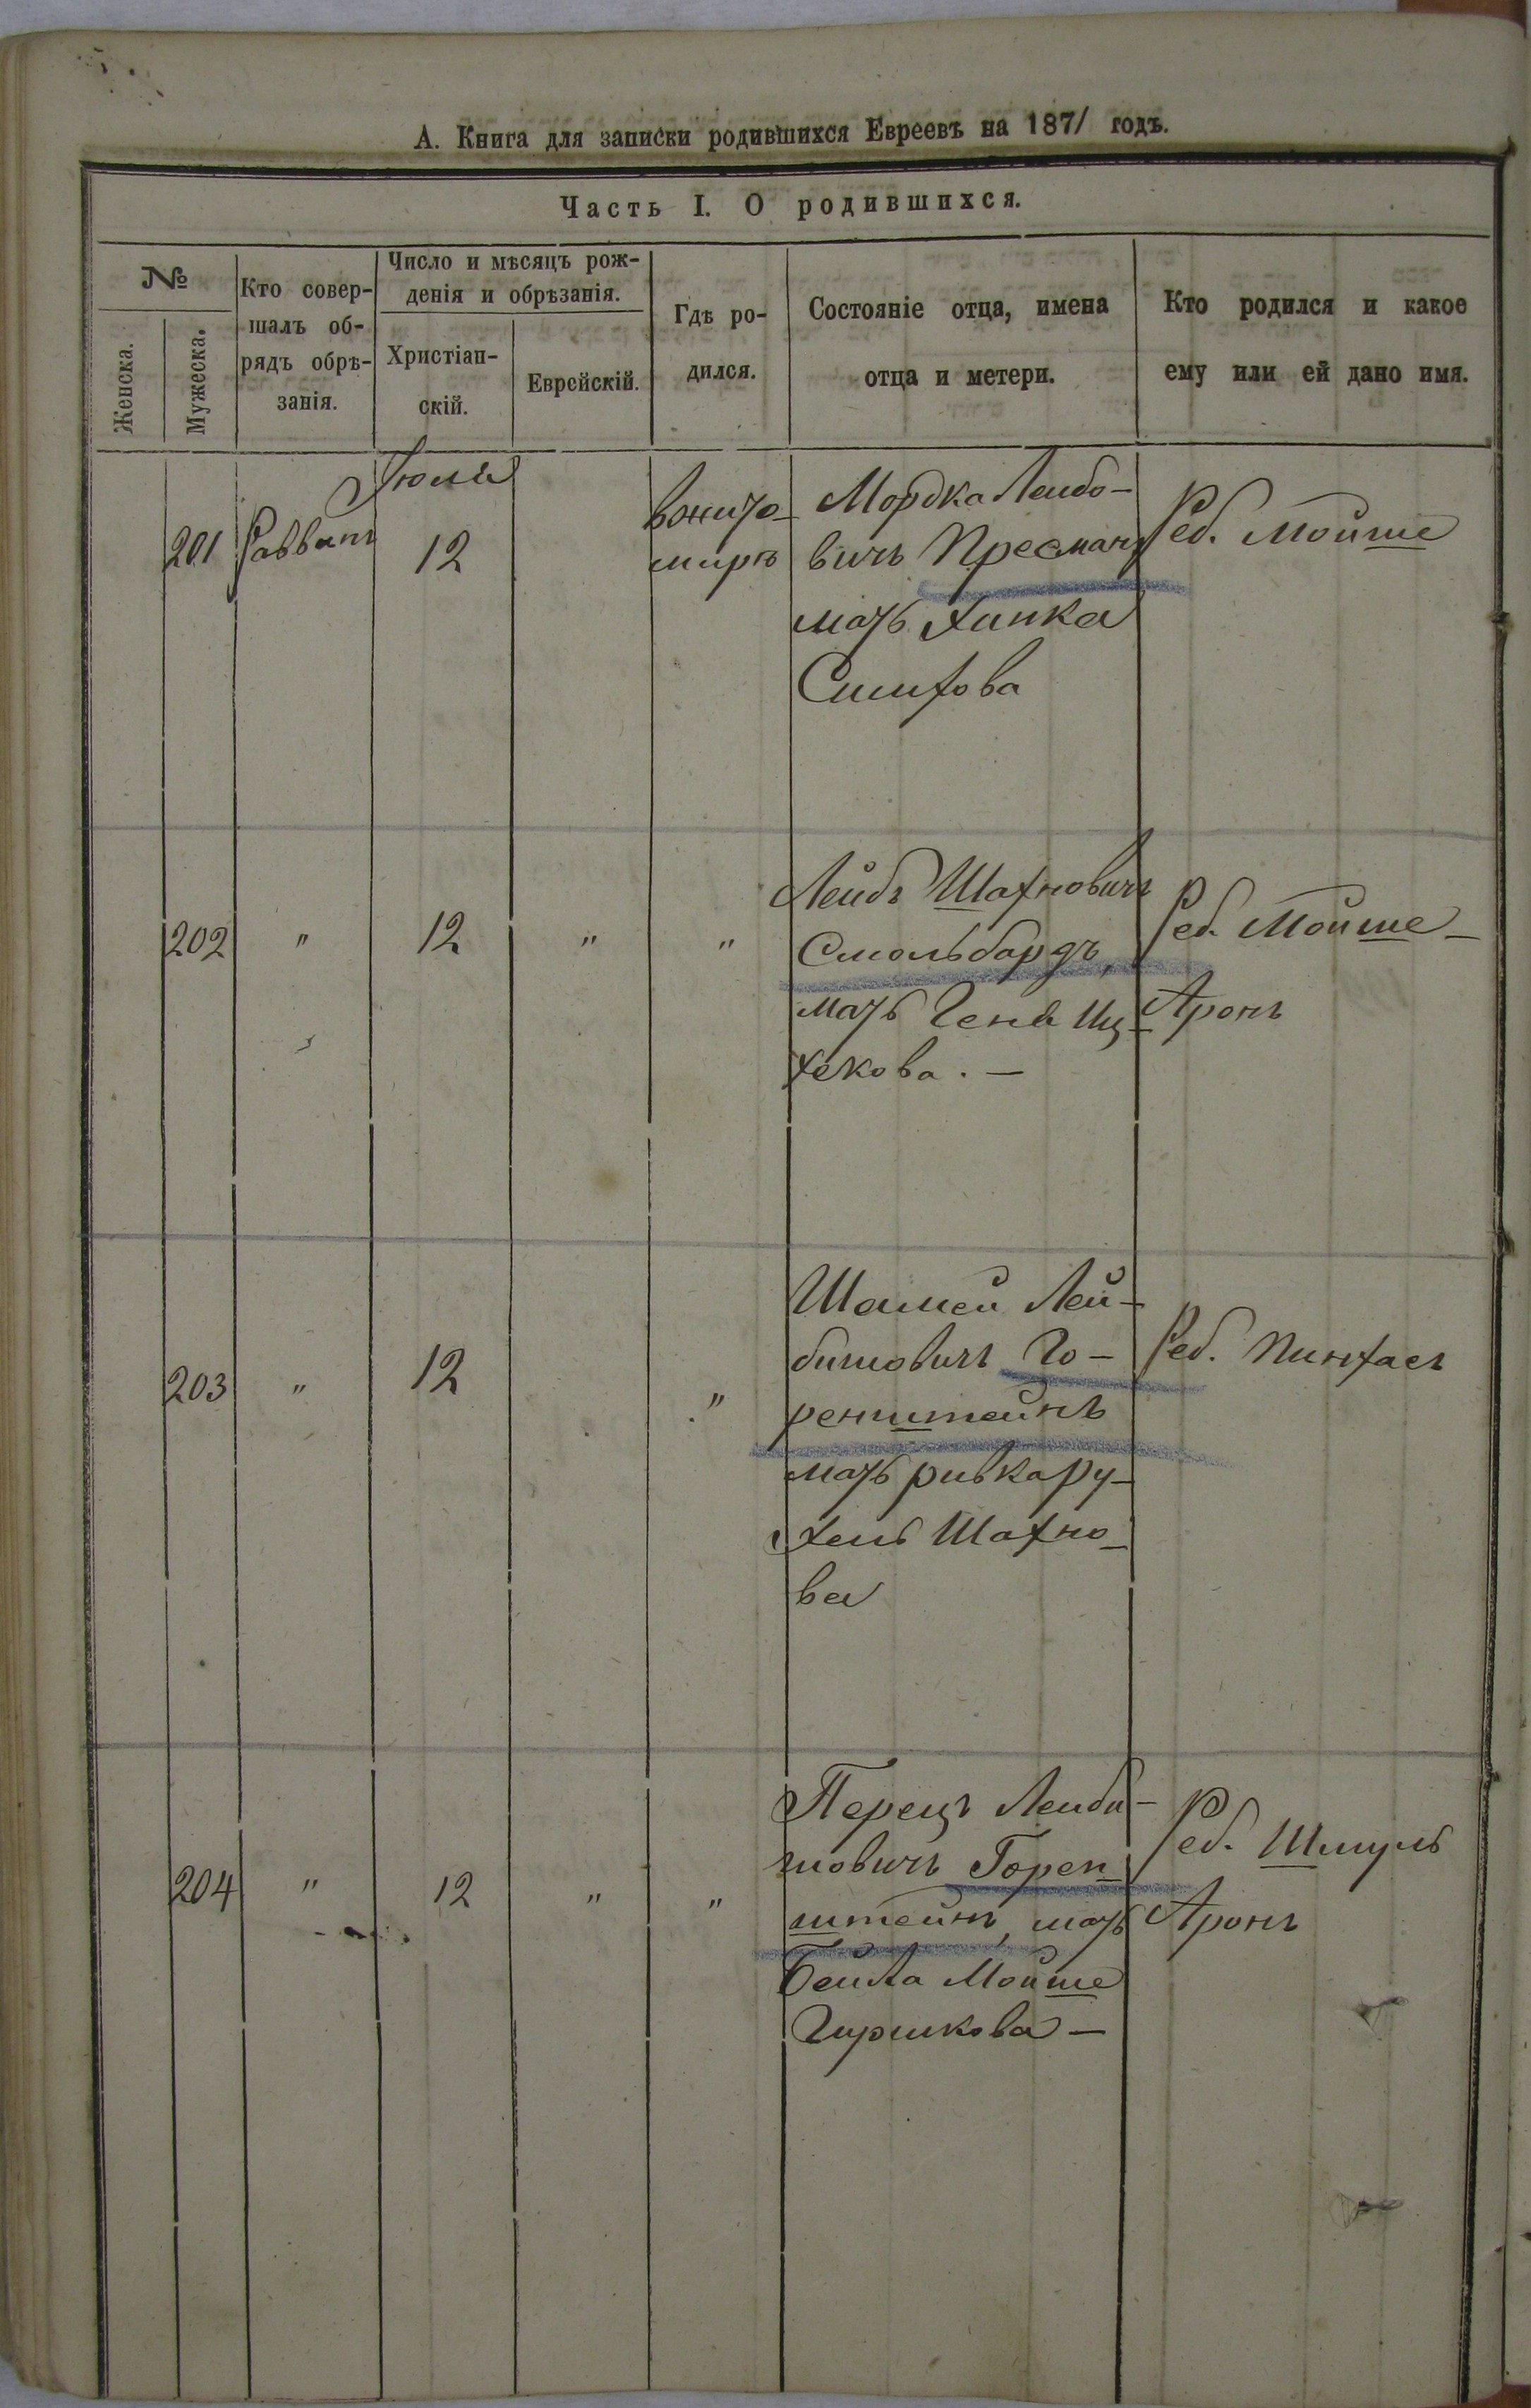 А. Книга для записки родившихся Евреевъ на 1871 годъ.
Часть I. О родившихся.
№
Женска.
Мужеска.
Кто совер-
шалъ об-
рядъ обрѣ-
занія.
Число и мѣсяцъ рож-
денія и обрѣзанія.
Христіан-
скій.
Еврейскій.
Гдѣ ро-
дился.
Состояніе отца, имена
отца и метери.
Кто родился и какое
ему или ей дано имя.
Іюля
201
Раввинъ
12
в Жито-
миръ
Мордка Лейбо-
вичъ Пресманъ
мать Хинка
Симхова
Реб. Мойше
202
"
12
"
"
Лейбъ Шахновичъ
Смольбардъ,
мать Геня Иц-
хекова. —
Реб. Мойше —
Аронъ
203
"
12
"
Шамей Лей-
бишовичъ Го-
ренштейнъ
мать Ривка Ру-
хель Шахно-
ва
Реб. Пинхасъ
204
"
12
"
"
Перецъ Лейби-
шовичъ Горен-
штейнъ, мать
Бейла Мойше
Гиршкова —
Реб. Шмуль
Аронъ